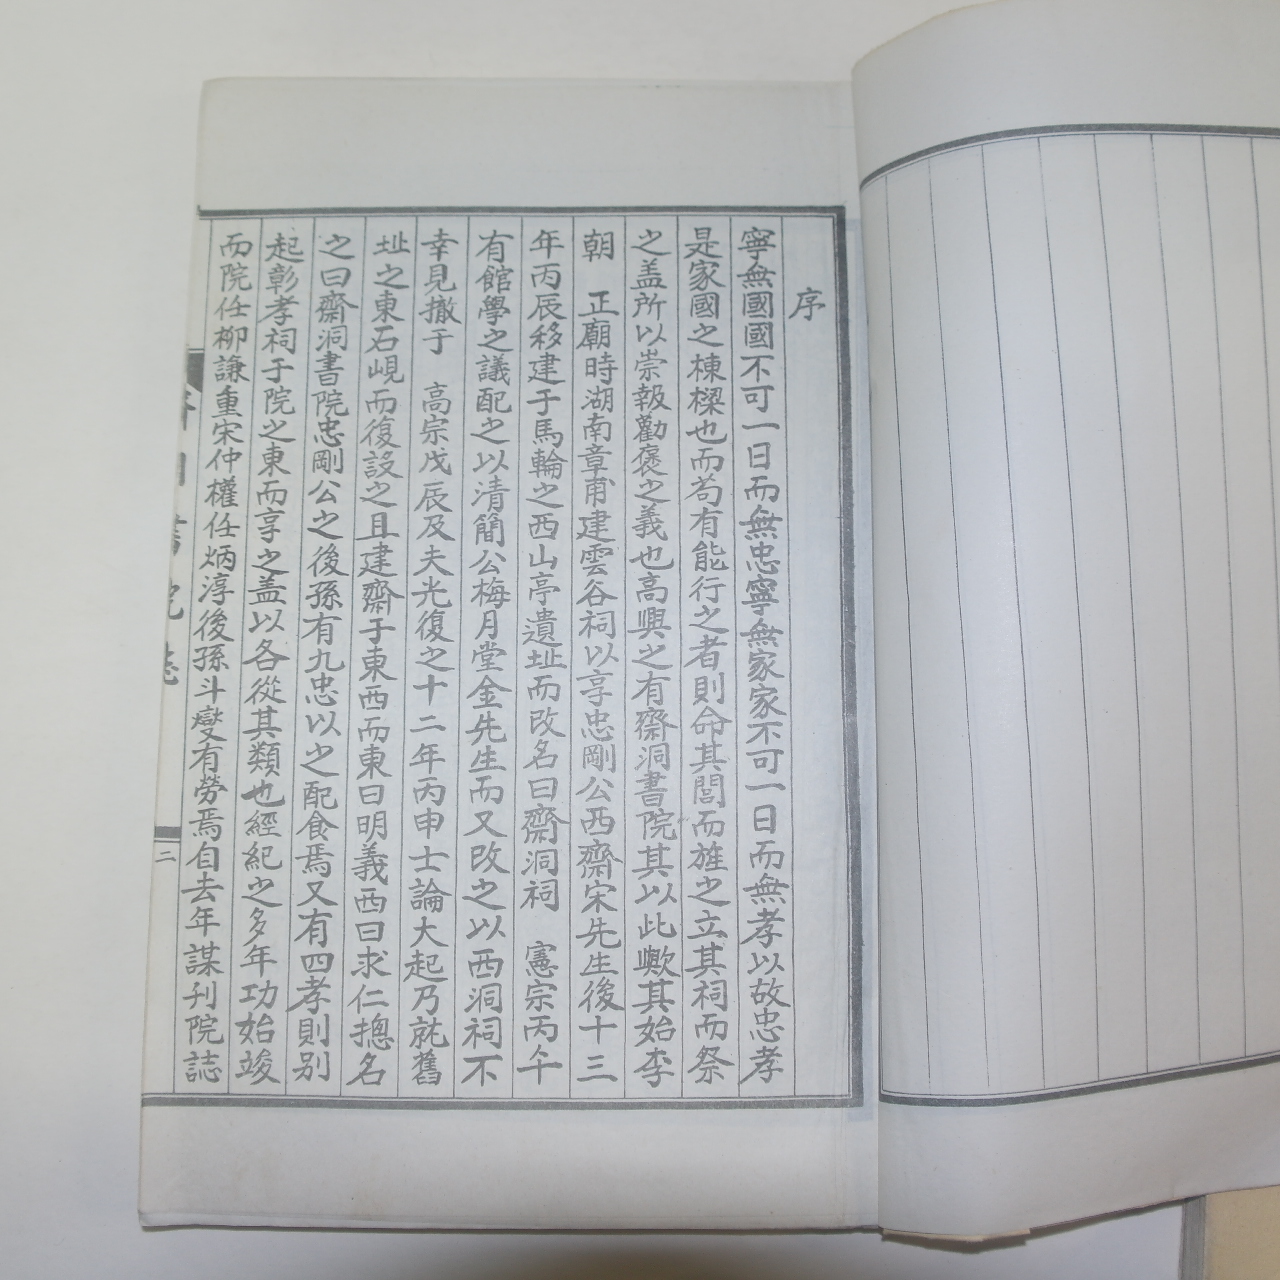 序
寧無國國不可一日而無忠寧無家家不可一日而無孝以故忠孝
是家國之棟樑也而苟有能行之者則命其閭而旌之立其祠而祭
之盖所以崇報勸褒之義也高興之有齋洞書院其以此歟其始李
朝 正廟時湖南章甫建雲谷祠以享忠剛公西齋宋先生後十三
年丙辰移建于馬輪之西山亭遺址而改名曰齋洞祠 憲宗丙午
有館學之議配之以清簡公梅月堂金先生而又改之以西洞祠不
幸見撤于 高宗戊辰及夫光復之十二年丙申士論大起乃就舊
址之東石峴而復設之且建齋于東西而東曰明義西曰求仁摠名
之曰齋洞書院忠剛公之後孫有九忠以之配食焉又有四孝則別
起彰孝祠于院之東而享之盖以各從其類也經紀之多年功始竣
而院任柳謙重宋仲權任炳淳後孫斗燮有勞焉自去年謀刊院誌
書院誌
二